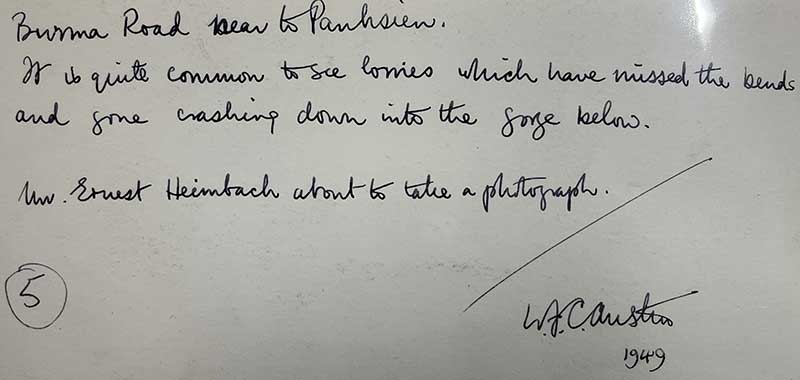 Burma Road near to Panhsien.
It is quite common to see lorries which have missed the bends
and gone crashing down into the gorge below.
Mr. Ernest Heimbach about to take a photograph.
5
W.J.C. Austin
1949